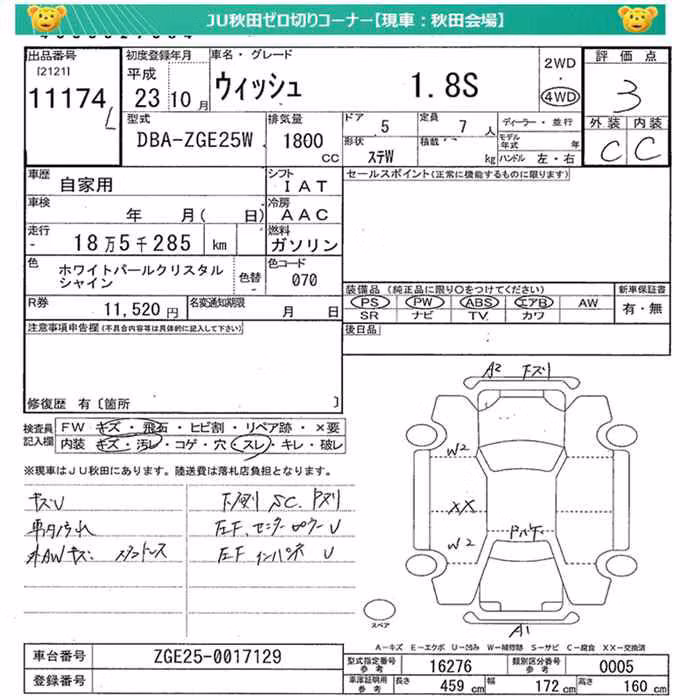 JU秋田ゼロ切りコーナー【現車：秋田会場】
出品番号
[2121]
11174
L
初度登録年月
平成
23 10月
車名・グレード
ウィッシュ 1.8S
2WD
4WD
評価点
3
外装 内装
C C
型式
DBA-ZGE25W
排気量
1800
CC
ドア 5
定員 7人
ディーラー・並行
形状 ステW
積載 kg
モデル年式 年
ハンドル 左・右
車歴
自家用
シフト
IAT
セールスポイント(正常に機能するものに限ります)
車検
年 月( 日)
冷房
AAC
走行
- 18万5千285 km
燃料
ガソリン
色
ホワイトパールクリスタル
シャイン
色替
色コード
070
装備品 (純正品に限り○をつけてください)
PS PW ABS エアB AW
SR ナビ TV カワ
新車保証書
有・無
R券
11,520円
名変通知期限
月 日
後日品
注意事項申告欄(不具合内容等は具体的に記入して下さい)
修復歴 有〔箇所 〕
検査員
記入欄
FW キズ・飛石・ヒビ割・リペア跡・×要
内装 キズ・汚レ・コゲ・穴・スレ・キレ・破レ
※現車はJU秋田にあります。陸送費は落札店負担となります。
キズU
外AWキズ
下廻り SC.
A2
W2
XX
W2
A1
スペア
A－キズ E－エクボ U－凹み W－補修跡 S－サビ C－腐食 XX－交換済
車台番号 ZGE25-0017129
登録番号
型式指定番号
参考
16276
類別区分番号
参考
0005
車庫証明用
参考
長さ 459 cm
幅 172 cm
高さ 160 cm